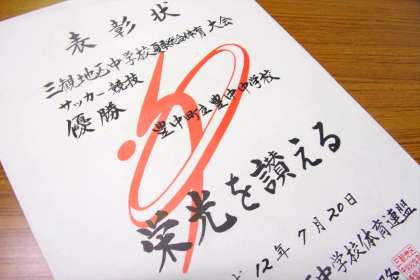 表彰状
三観地区中学校夏季総合体育大会
サッカー競技
優勝 豊中町立豊中中学校
栄光を讃える
12年7月20日
中学校体育連盟